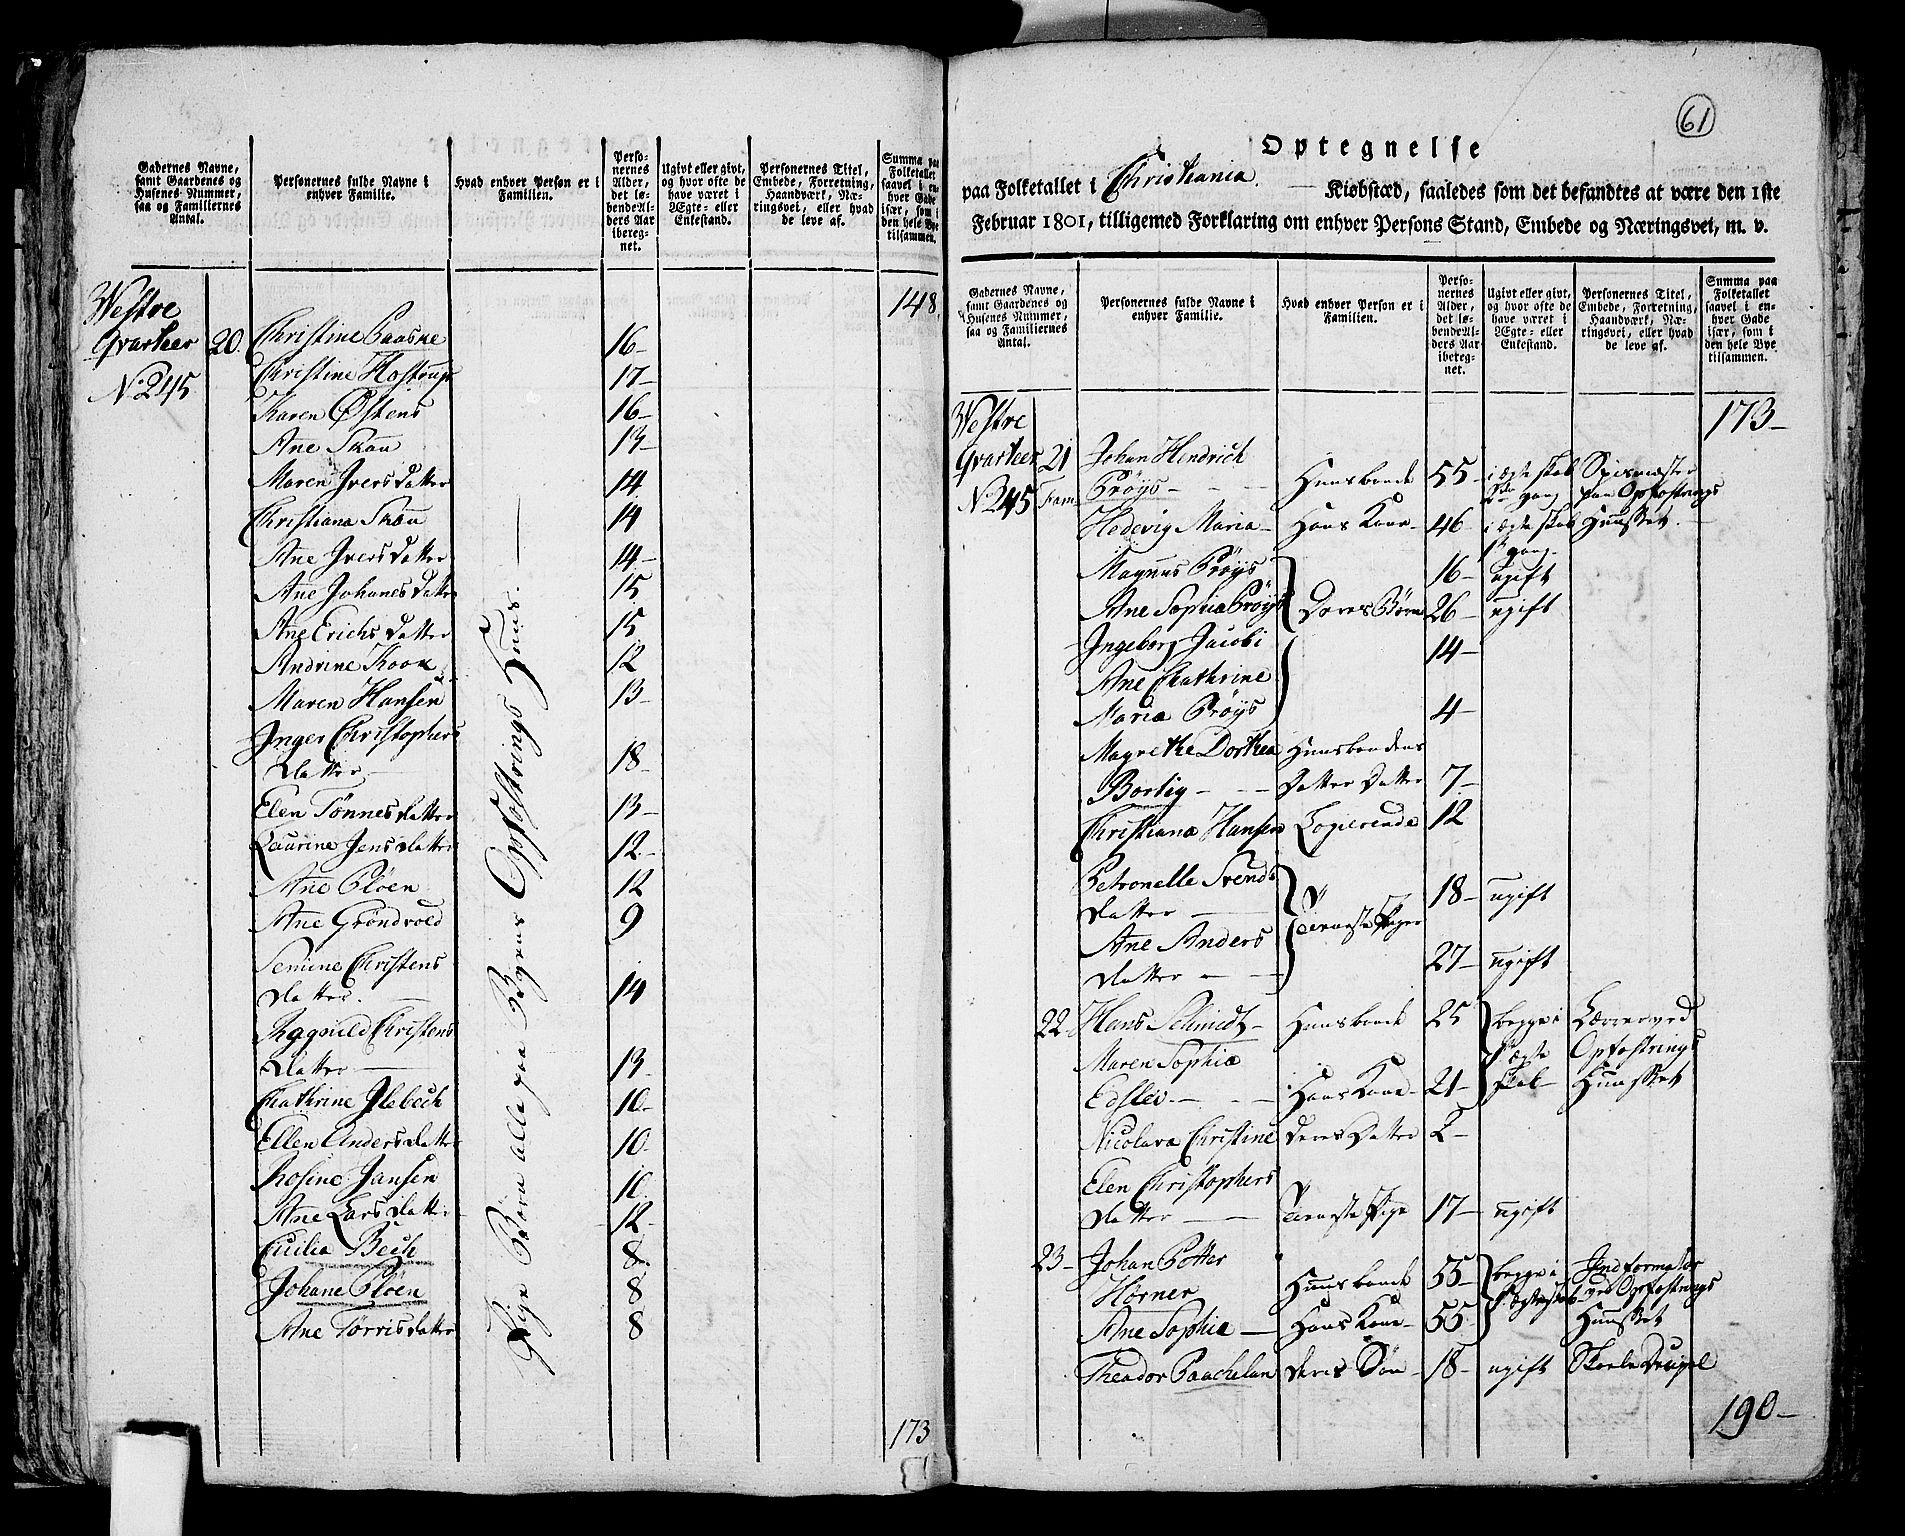 Gadernes Navne,
samt Gaardenes og
Husenes Nummer,
saa og Familiernes
Antal.
Personernes fulde Navne i
enhver Familie.
Hvad enhver Person er i
Familien.
Perso-
nernes
Alder,
det lø-
bende Al-
ders Aar
iberег-
net.
Ugivt eller givt,
og hvor ofte de
have været i
Ægte- eller
Enkestand.
Personernes Titel,
Embede, Forretning,
Haandværk, Næ-
ringsvei, eller hvad
de leve af.
Summa paa
Folketallet
saavel i en-
hver Gade
især, som i
den hele Bye
tilsammen.
148
Westre
Qvarteer 20. Christine Baasne 16-
Christine Hostrup 17-
No. 245
Karen Østens 16-
Ane Skou 13-
Maren Ivers datter 14
Christiana Skou 14
Ane Ivers datter 14-
Ane Johanes datter 15
Ane Erichs datter 15
Andrine Koox 12
Maren Hansen 13-
Inger Christophers
datter 18-
Elen Tønnes datter 13-
Laurine Jens datter 12-
Ane Pløen 12
Ane Grøndvold 9
Semine Christens
datter. 14
Ragnild Christens
datter 13-
Chathrine Ilebech 10-
Ellen Anders datter 10-
Rosine Jansen 10
Ane Lars datter 12-
Cicilia Bech 8
Johane Pløen 8
Ane Torris datter 8
Pige Børn alle paa Byens Opfostrings Huus.
173
61
Optegnelse
paa Folketallet i Christiania. Kiøbstæd, saaledes som det befandtes at være den 1ste
Februar 1801, tilligemed Forklaring om enhver Persons Stand, Embede og Næringsvei, m. v.
Gadernes Navne,
samt Gaardenes og
Husenes Nummer,
saa og Familiernes
Antal.
Personernes fulde Navne i
enhver Familie.
Hvad enhver Person er i
Familien.
Perso-
nernes
Alder,
det lø-
bende Al-
ders Aar
ibereg-
net.
Ugivt eller givt,
og hvor ofte de
have været i
Ægte- eller
Enkestand.
Personernes Titel,
Embede, Forretning,
Haandværk, Næ-
ringsvei, eller hvad
de leve af.
Summa paa
Folketallet
saavel i en-
hver Gade
især, som i
den hele Bye
tilsammen.
173-
Westre
Qvarteer 21 Johan Hendrich
No. 245 Fam- Prøys Huusbonde 55 i ægte skab 2de gang Spismester paa Opfostrings
Hedevig Maria Hans Kone 46 i ægte skab 1te gang Huuset.
Magnus Prøys 16- ugift
Ane Sophia Prøys Deres Børn 26- ugift
Ingeborg Jacobi 14-
Ane Chathrine
Maria Prøys 4-
Magrethe Dorthea Huusbondens
Bortig Datter Datter 7-
Christiana Hansen Logerende 12
Petronelle Svends
datter 18- ugift
Tieneste Piger
Ane Anders
datter 27- ugift
22 Hans Schmidt Huusbonde 25 begge i Lærer ved
Maren Sophia 1te ægte Opfostrings
Edslev Hans Kone 21- skab Huuset
Nicolava Christine deres Datter 2-
Elen Christophers
datter Tieneste Pige 17- ugift
23- Johan Potter
Hørner Huusbonde 55- begge i Informator ved Opfostrings
Ane Sophia Hans Kone 55 1 ægteskab Huuset
Theodor Paachelan deres Søn 18- ugift Skole Discipel
190-